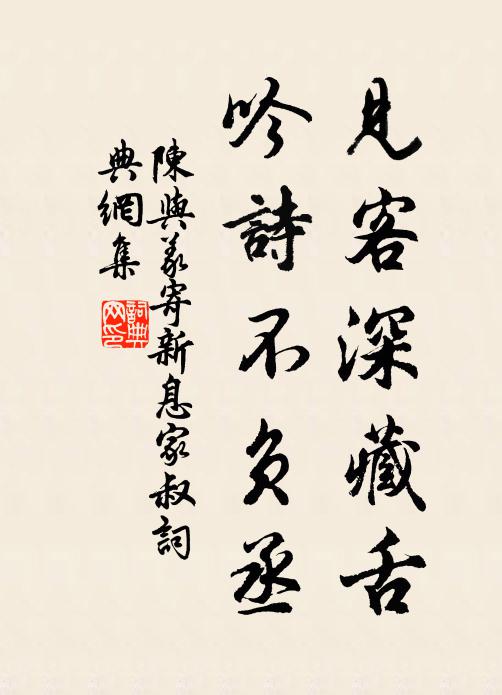 見客深藏舌
吟詩不負丞
陳與義寄新息家叔詞
典網集
詞典網印